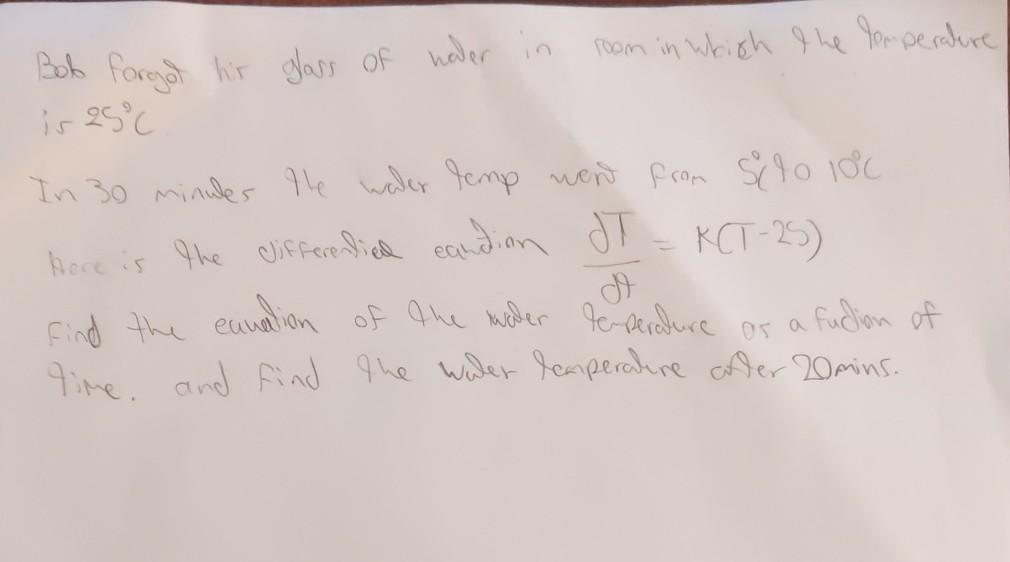 Bob forgot his glass of water in room in which the temperature
is 25°C
In 30 minutes the water temp went from 5°C to 10°C
Here is the differential equation dT/dt = K(T-25)
Find the equation of the water temperature as a fuction of
time. and Find the water temperature after 20mins.